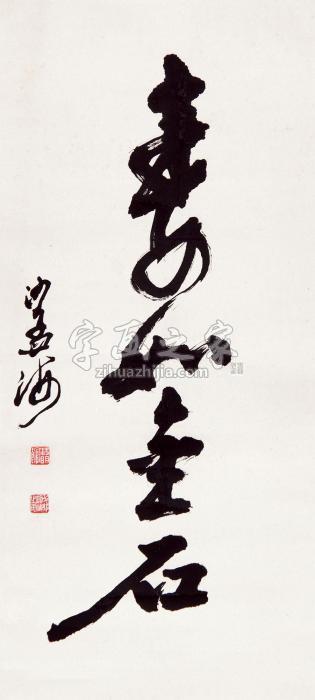 寿如金石
沙孟海
字画之家
zihuazhijia.com